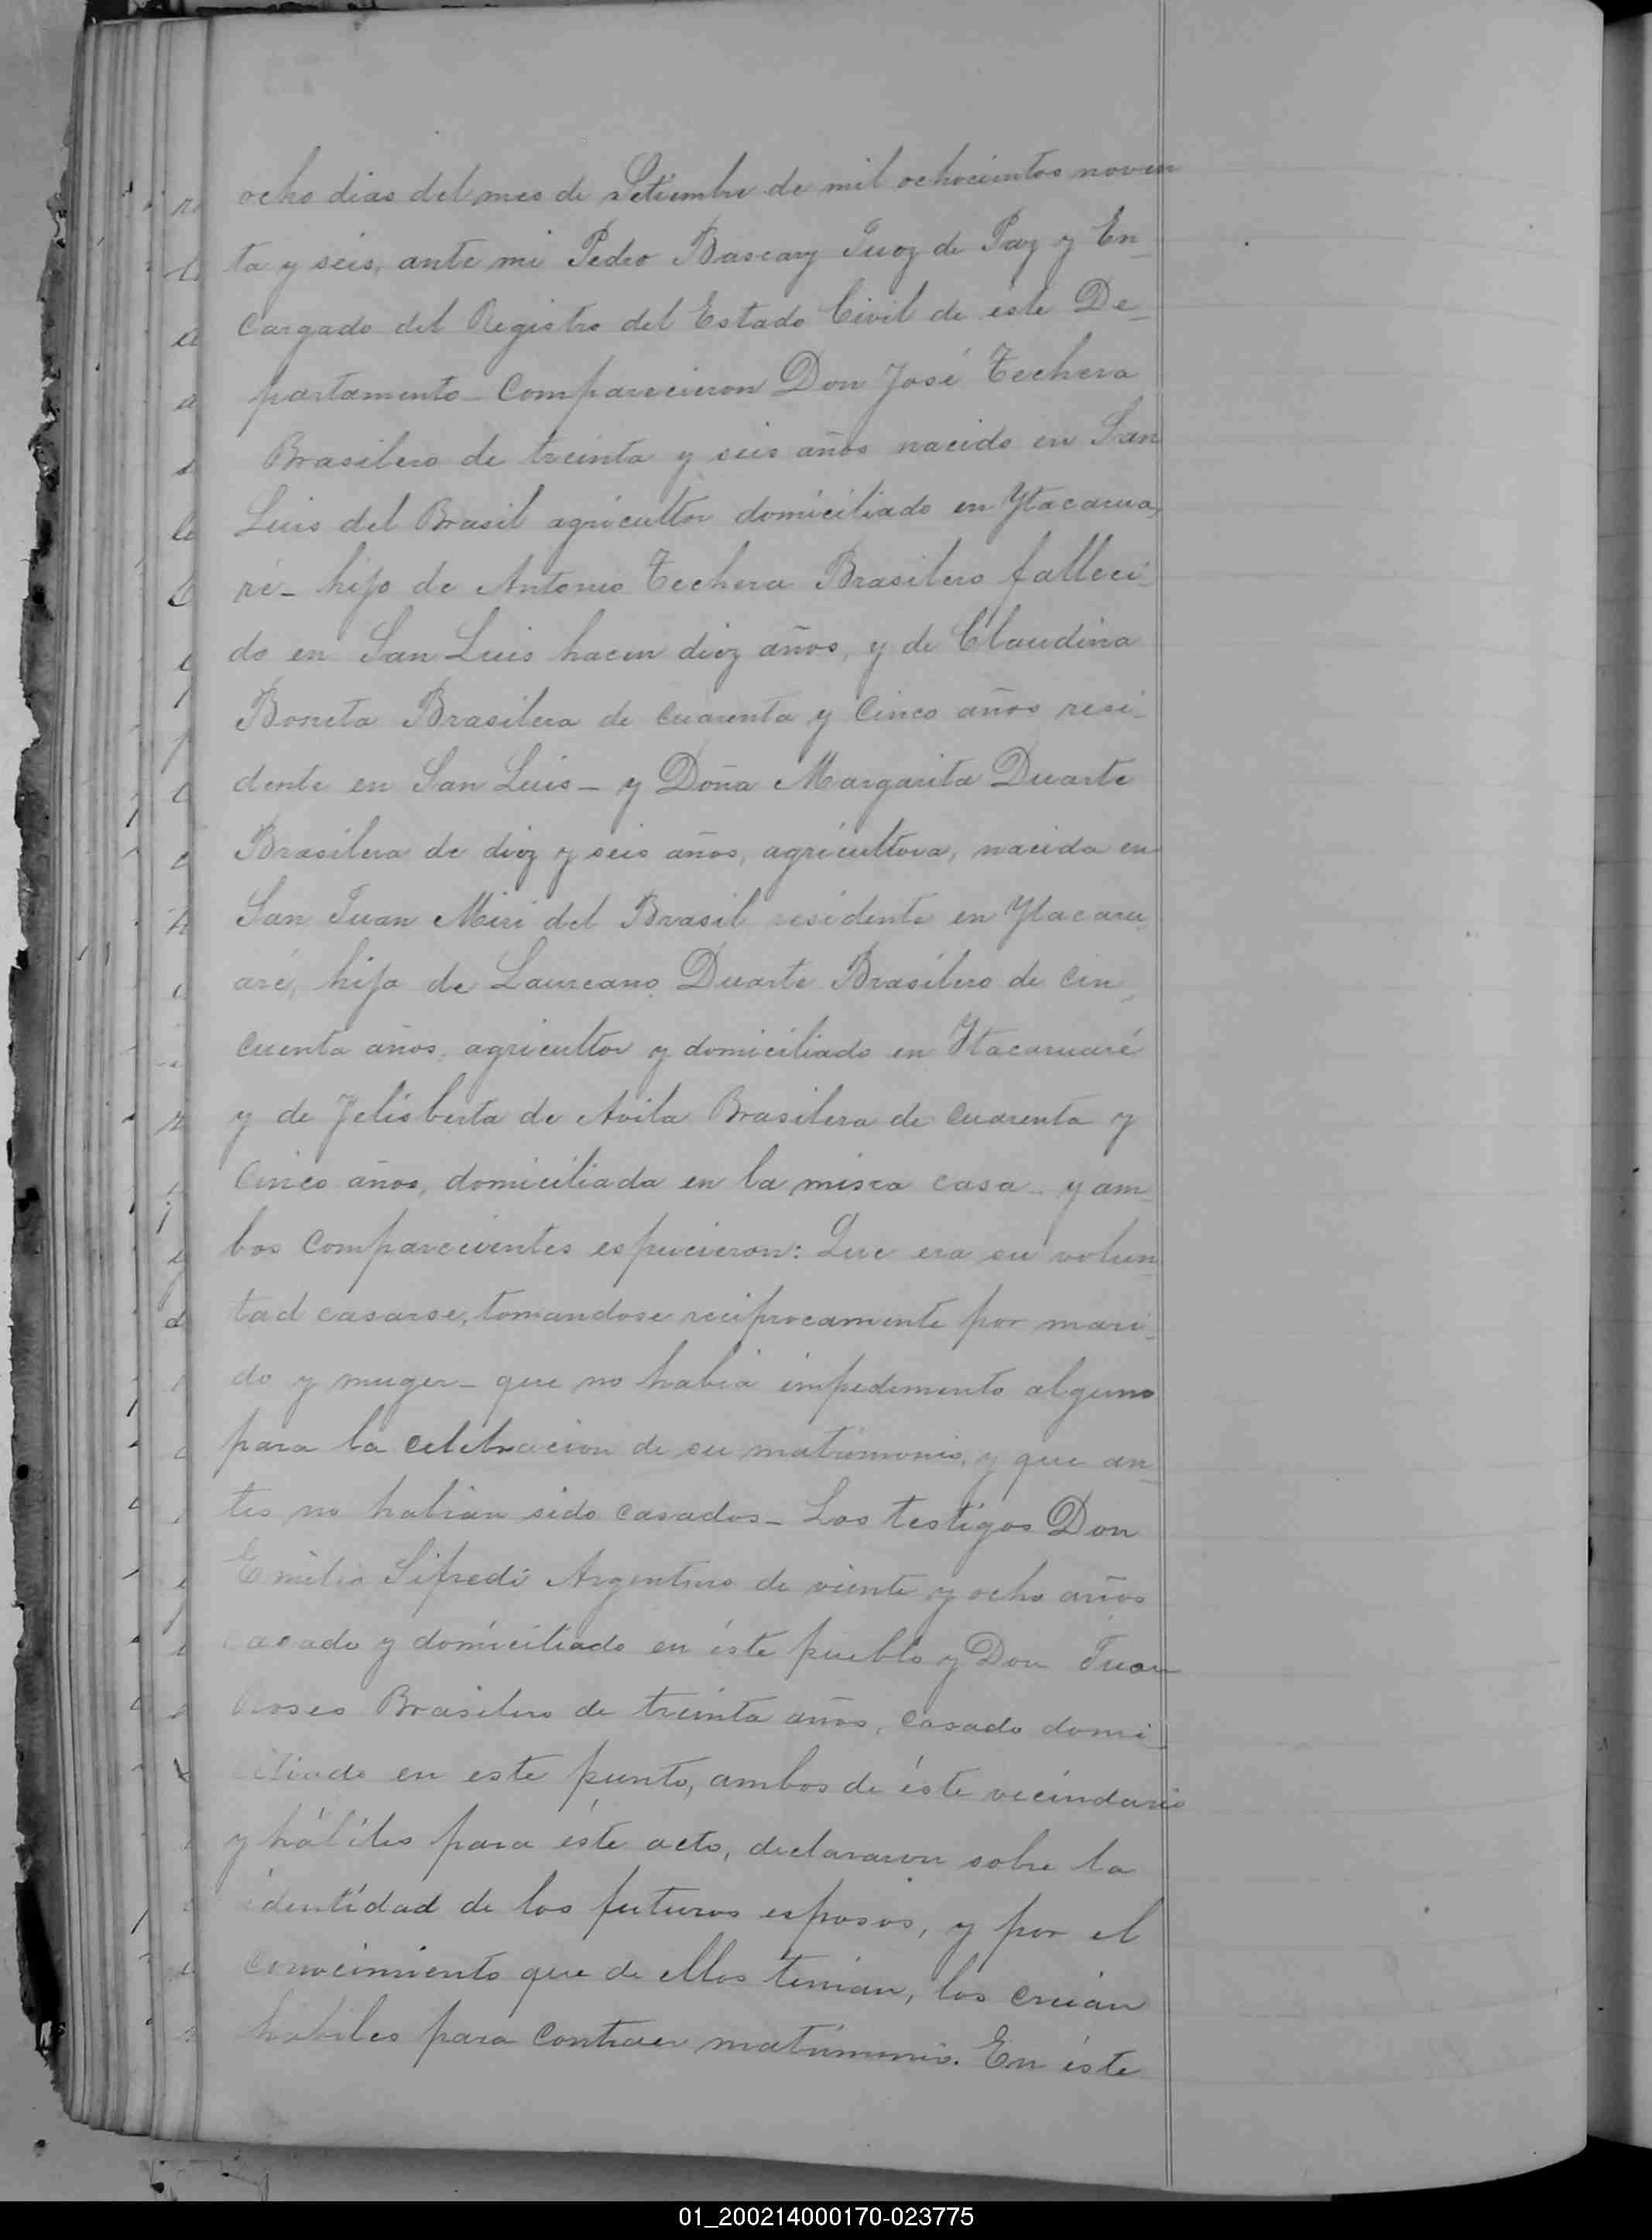 ocho dias del mes de Setiembre de mil ochocientos noven
ta y seis, ante mi Pedro Bascary Juez de Paz y En_
cargado del Registro del Estado Civil de este De_
partamento_ Comparecieron Don José Techera
Brasilero de treinta y seis años nacido en San
Luis del Brasil agricultor domiciliado en Ytacarua,
ré_ hijo de Antonio Techera Brasilero falleci_
do en San Luis hacen diez años, y de Claudina
Boneta Brasilera de cuarenta y cinco años resi_
dente en San Luis_ y Doña Margarita Duarte
Brasilera de diez y seis años, agricultora, nacida en
San Juan Miri del Brasil residente en Ytacaru_
aré, hija de Laureano Duarte Brasilero de cin_
cuenta años, agricultor y domiciliado en Ytacaruaré
y de Felisberta de Avila Brasilera de cuarenta y
cinco años, domiciliada en la misca casa_ y am_
bos comparecientes espucieron: Que era su volun_
tad casarse, tomandose reciprocamente por mari_
do y muger_ que no habia impedimento alguno
para la celebracion de su matrimonio, y que an_
tes no habian sido casados_ Los testigos Don
Emilio Sifredi Argentino de veinte y ocho años
casado y domiciliado en éste pueblo y Don Juan
Roses Brasilero de treinta años, casado domi_
ciliado en este punto, ambos de éste vecindario
y hábiles para éste acto, declararon sobre la
identidad de los futuros esposos, y por el
conocimiento que de ellos tenian, los creian
habiles para contraer matrimonio. En éste
01_200214000170-023775